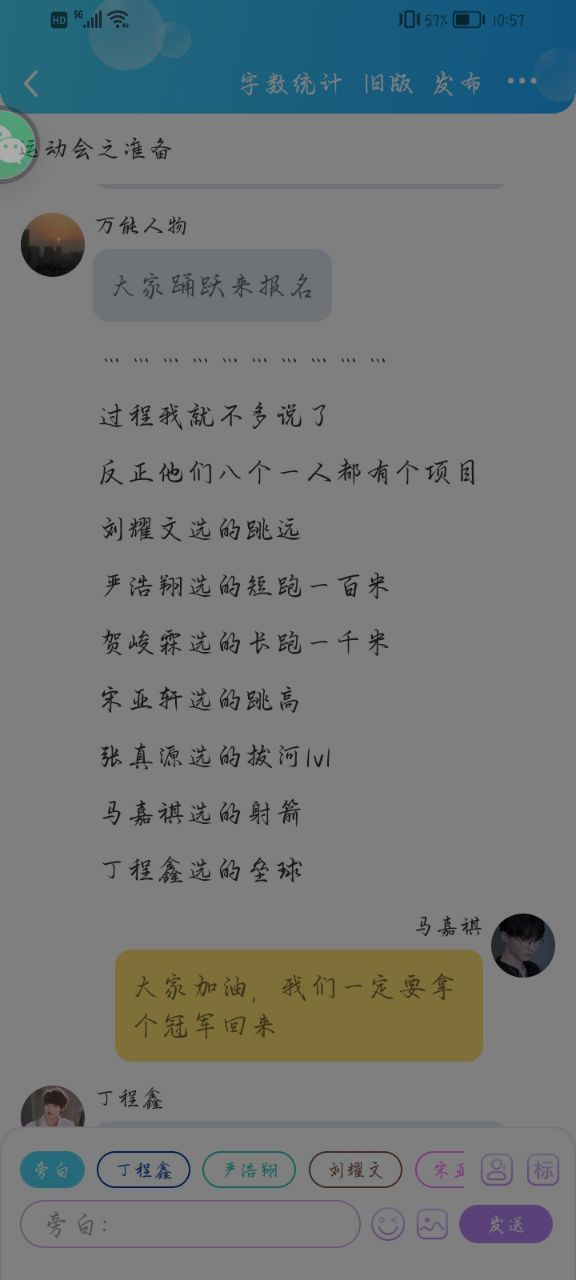 HD 5G 57% 10:57
字数统计 旧版 发布 ...
运动会之准备
万能人物
大家踊跃来报名
、、、 、、、 、、、 、、、 、、、 、、、 、、、 、、、 、、、 、、、
过程我就不多说了
反正他们八个一人都有个项目
刘耀文选的跳远
严浩翔选的短跑一百米
贺峻霖选的长跑一千米
宋亚轩选的跳高
张真源选的拔河1v1
马嘉祺选的射箭
丁程鑫选的垒球
马嘉祺
大家加油，我们一定要拿
个冠军回来
丁程鑫
旁白 丁程鑫 严浩翔 刘耀文 宋亚 标
旁白: 发送